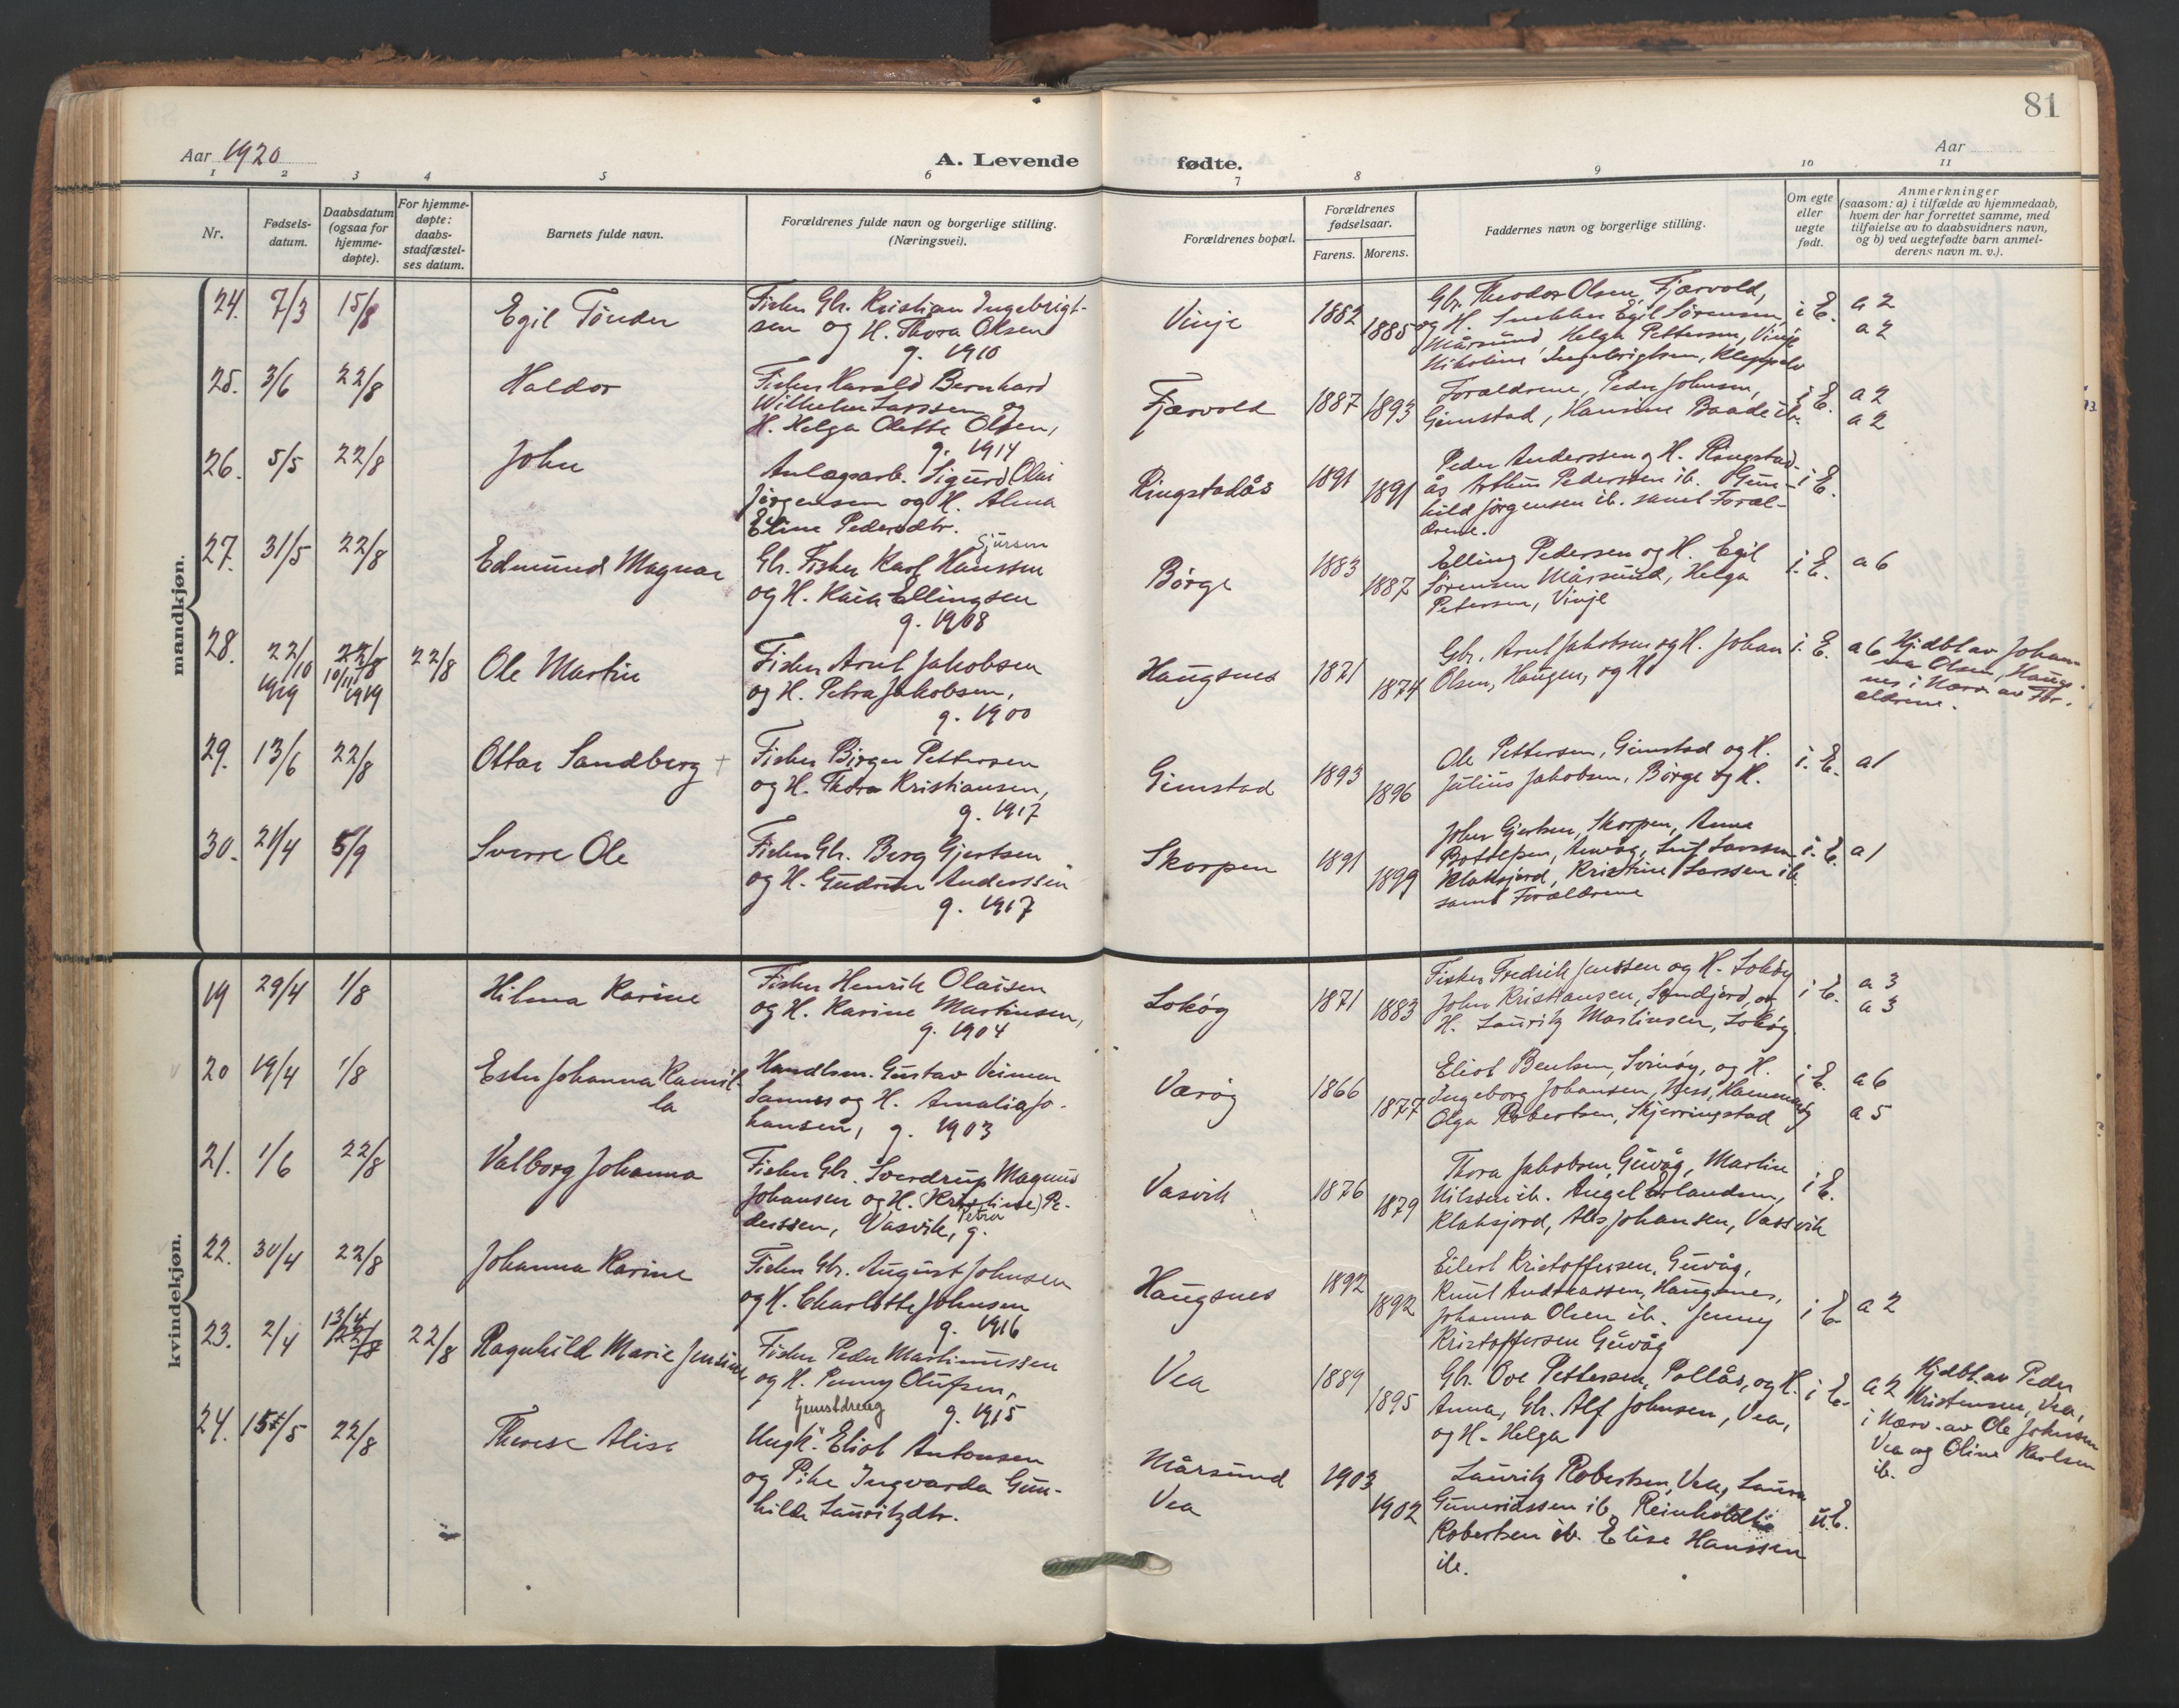 81
Aar 1920
A. Levende
fødte.
Aar
1 2 3 4 5 6 7 8 9 10 11
Nr.
Fødsels-
datum.
Daabsdatum
(ogsaa for
hjemme-
døpte).
For hjemme-
døpte:
daabs-
stadfæstel-
ses datum.
Barnets fulde navn.
Forældrenes fulde navn og borgerlige stilling.
(Næringsvei).
Forældrenes bopæl.
Forældrenes
fødselsaar.
Farens. Morens.
Faddernes navn og borgerlige stilling.
Om egte
eller
uegte
født.
Anmerkninger
(saasom: a) i tilfælde av hjemmedaab,
hvem der har forrettet samme, med
tilføielse av to daabsvidners navn,
og b) ved uegtefødte barn anmel-
derens navn m. v.).
mandkjøn.
24. 7/3 15/8 Egil Tönder
Fisker Gbr. Kristian Ingebrigt-
sen og H. Thora Olsen
g. 1910
Vinje 1882 1885
Gbr. Theodor Olsen, Fjærvold,
og H. Snekker Egil Sørensen,
Mårsund, Helga Pettersen, Vinje
Nikoline Ingebrigtsen, Kleppelv
i E. a 2
a 2
25. 3/6 22/8 Haldor
Fisker Harald Bernhard
Wilhelm Larssen og
H. Helga Olette Olsen,
g. 1914
Fjærvold 1887 1893
Forældrene, Peder Johnsen,
Gimstad, Hansine Baade ib.
i E. a 2
a 2
26. 5/5 22/8 John
Anlægsarb. Sigurd Olai
Jørgensen og H. Alma
Eline Pedersdtr.
Ringstadås 1891 1891
Peder Anderssen og H. Ringstad-
ås Arthur Pederssen ib. Gun-
hild Jørgensen ib. samt Foræl-
drene.
i E.
27. 31/5 22/8 Edmund Magnar
Sjursen
Gbr. Fisker Karl Hanssen
og H. Kaia Ellingsen
g. 1908
Børge 1883 1887
Elling Pedersen og H. Egil
Sørensen Mårsund, Helga
Petersen, Vinje
i. E. a 6
28. 22/10 1919 22/8 10/11 1919 22/8 Ole Martin
Fisker Arnt Jakobsen
og H. Petra Jakobsen,
g. 1900
Haugsnes 1871 1874
Gbr. Arnt Jakobsen og H. Johan
Olsen, Haugen, og H.
i. E. a 6 Hjdbt av Johan-
na Olsen, Haugs-
nes i Nærv. av For-
ældrene.
29. 13/6 22/8 Ottar Sandberg +
Fisker Birger Pettersen
og H. Thora Kristiansen,
g. 1917
Gimstad 1893 1896
Ole Pettersen, Gimstad og H.
Julius Jakobsen, Børge og H.
i. E. a 1
30. 21/4 5/9 Sverre Ole
Fisker Gbr. Berg Gjertsen
og H. Gudrun Anderssen
g. 1917
Skorpen 1891 1899
John Gjertsen, Skorpen, Anna
Leif Larssen
Klaksjord, Kristine Larssen ib.
samt Forældrene
i. E. a 1
kvindekjøn.
19 29/4 1/8 Hilma Karine
Fisker Henrik Olaisen
og H. Karine Martinsen,
g. 1904
Lokøy 1871 1883
Fisker Fredrik Jenssen og H. Lokøy
John Kristiansen, Sandjord, og
H. Lauritz Martinsen, Lokøy
i E. a 3
a 3
20 19/4 1/8 Ester Johanna Kamil-
la
Handlsm. Gustav Veimar
Sannes og H. Amalia Jo-
hansen, g. 1903
Værøy 1866 1877
Eliot Bentsen, Svinøy, og H.
Ingeborg Johansen,
Olga Robertsen, Skjerringstad
i E. a 6
a 5
21. 1/6 22/8 Valborg Johanna
Fisker Gbr. Sverdrup Magnus
Johansen og H. (Kristine) Pe-
Petra
derssen, Vasvik, g.
Vasvik 1876 1879
Thora Jakobsen, Guvåg, Martin
Nilssen ib. Angel Erlandsen,
Klaksjord, Als Johansen, Vassvik
i E.
22. 30/4 22/8 Johanna Karine
Fisker Gbr. August Johnsen
og H. Charlotte Johnsen
g. 1916
Haugsnes 1892 1892
Eilert Kristoffersen, Guvåg,
Knut Andreassen, Haugsnes,
Johanna Olsen ib. Jenny
Kristoffersen Guvåg
i E a 2
23. 2/4 13/4 22/8 22/8 Ragnhild Marie Jensine
Fisker Peder Martinussen
og H. Penny Olufsen,
g. 1915
Vea 1889 1895
Gbr. Ove Pettersen, Pollås, og H.
Anna, Gbr. Alf Johnsen, Vea,
og H. Helga
i E. a 2 Hjdbt. av Peder
Kristensen, Vea,
i Nærv. av Ole Johnsen
Vea og Oline Karlsen
ib.
24. 15/5 22/8 Therese Alise
Tjenestdreng
Ungk. Eliot Antonsen
og Pike Ingvarda Gun-
hilda Lauritzdtr.
Mårsund
Vea
1903 1902
Lauritz Robertsen, Vea, Laura
Gunvidssen ib. Reinholdt
Robertsen ib. Elise Hanssen
ib.
u. E.